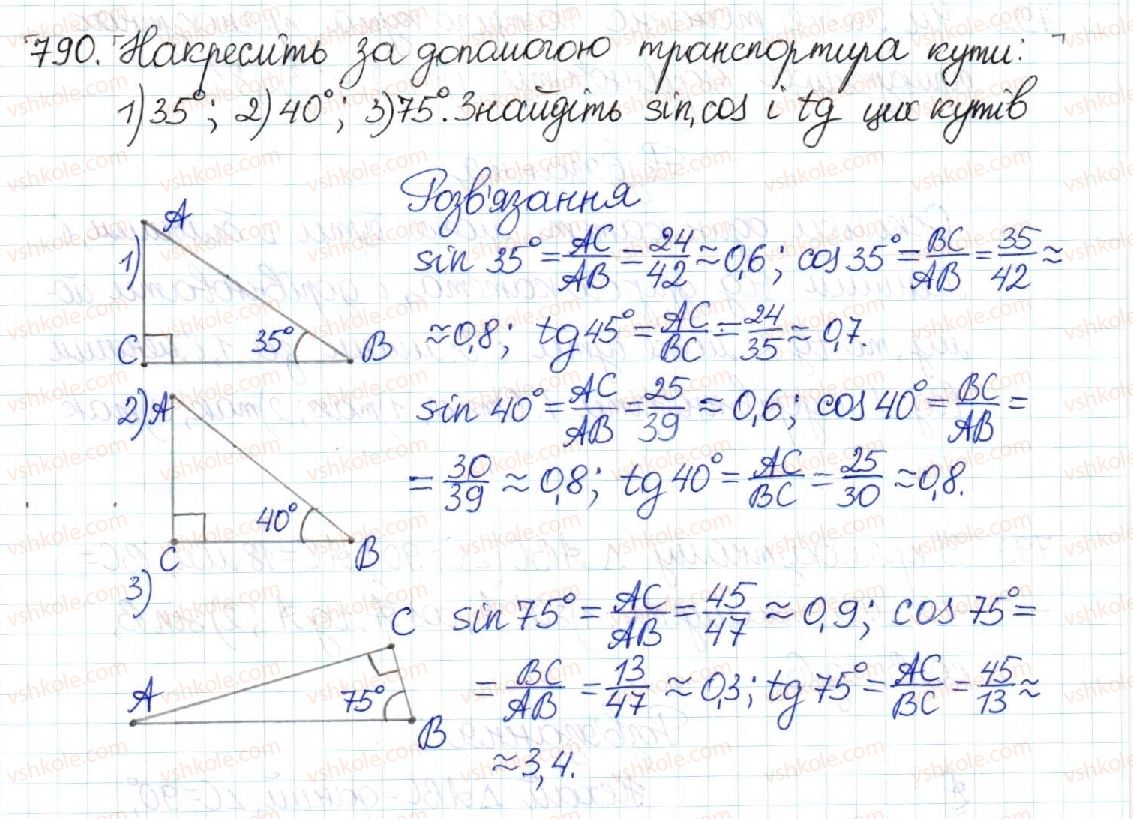 790. Накресліть за допомогою транспортира кути:
1) 35°; 2) 40°; 3) 75°. Знайдіть sin, cos і tg цих кутів
Розв'язання
1) A C B 35°
sin 35° = AC/AB = 24/42 ≈ 0,6; cos 35° = BC/AB = 35/42 ≈
≈ 0,8; tg 45° = AC/BC = 24/35 ≈ 0,7.
2) A C B 40°
sin 40° = AC/AB = 25/39 ≈ 0,6; cos 40° = BC/AB =
= 30/39 ≈ 0,8; tg 40° = AC/BC = 25/30 ≈ 0,8.
3) A C B 75°
sin 75° = AC/AB = 45/47 ≈ 0,9; cos 75° =
= BC/AB = 13/47 ≈ 0,3; tg 75° = AC/BC = 45/13 ≈
≈ 3,4.
vshkole.com